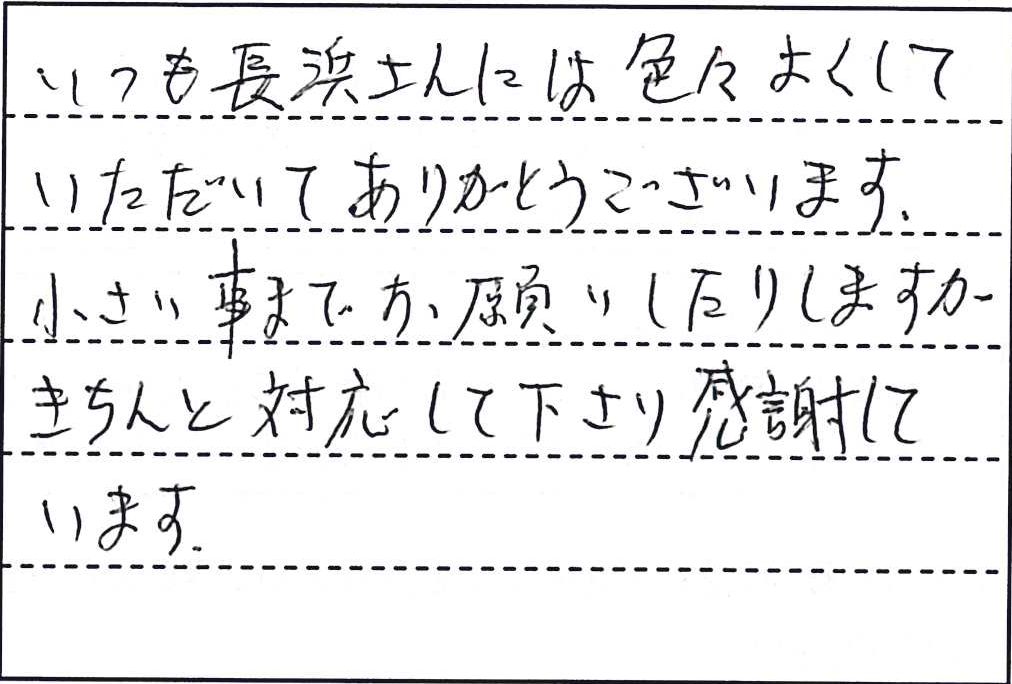 いつも長浜さんには色々よくして
いただいてありがとうございます.
小さい事までお願いしたりしますが
きちんと対応して下さり感謝して
います.